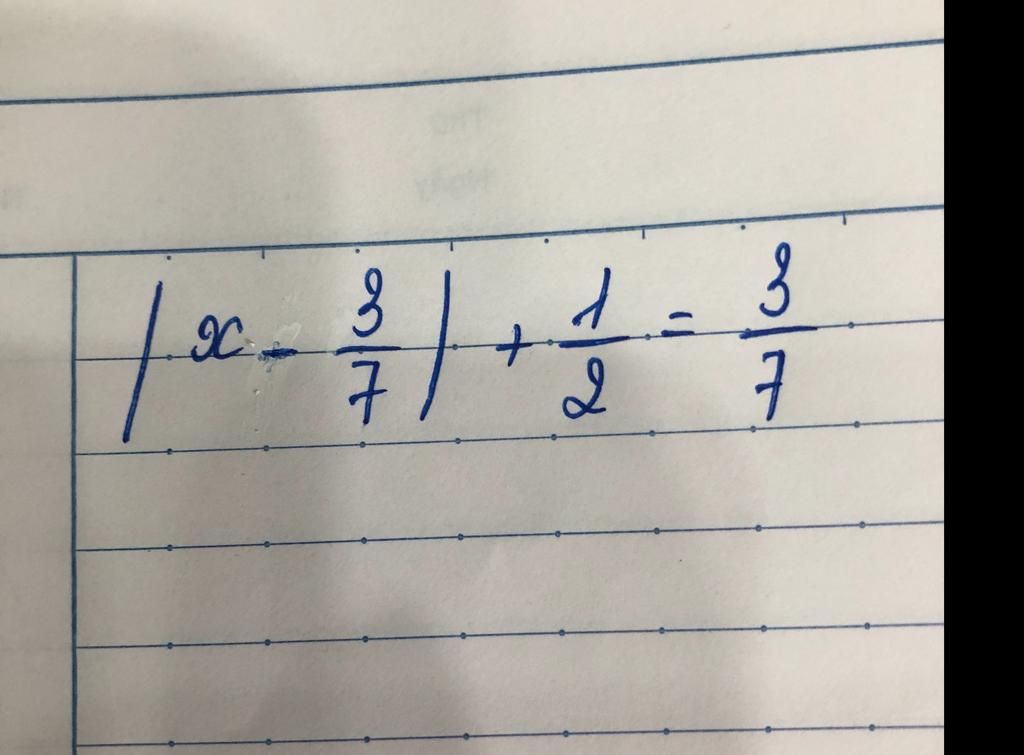 |x - 3/7| + 1/2 = 3/7